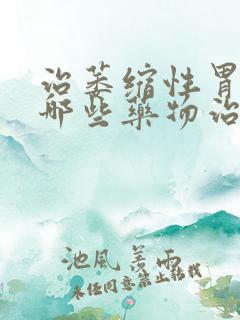 治萎缩性胃
哪些药物治
池风善雨
未经同意禁止转载